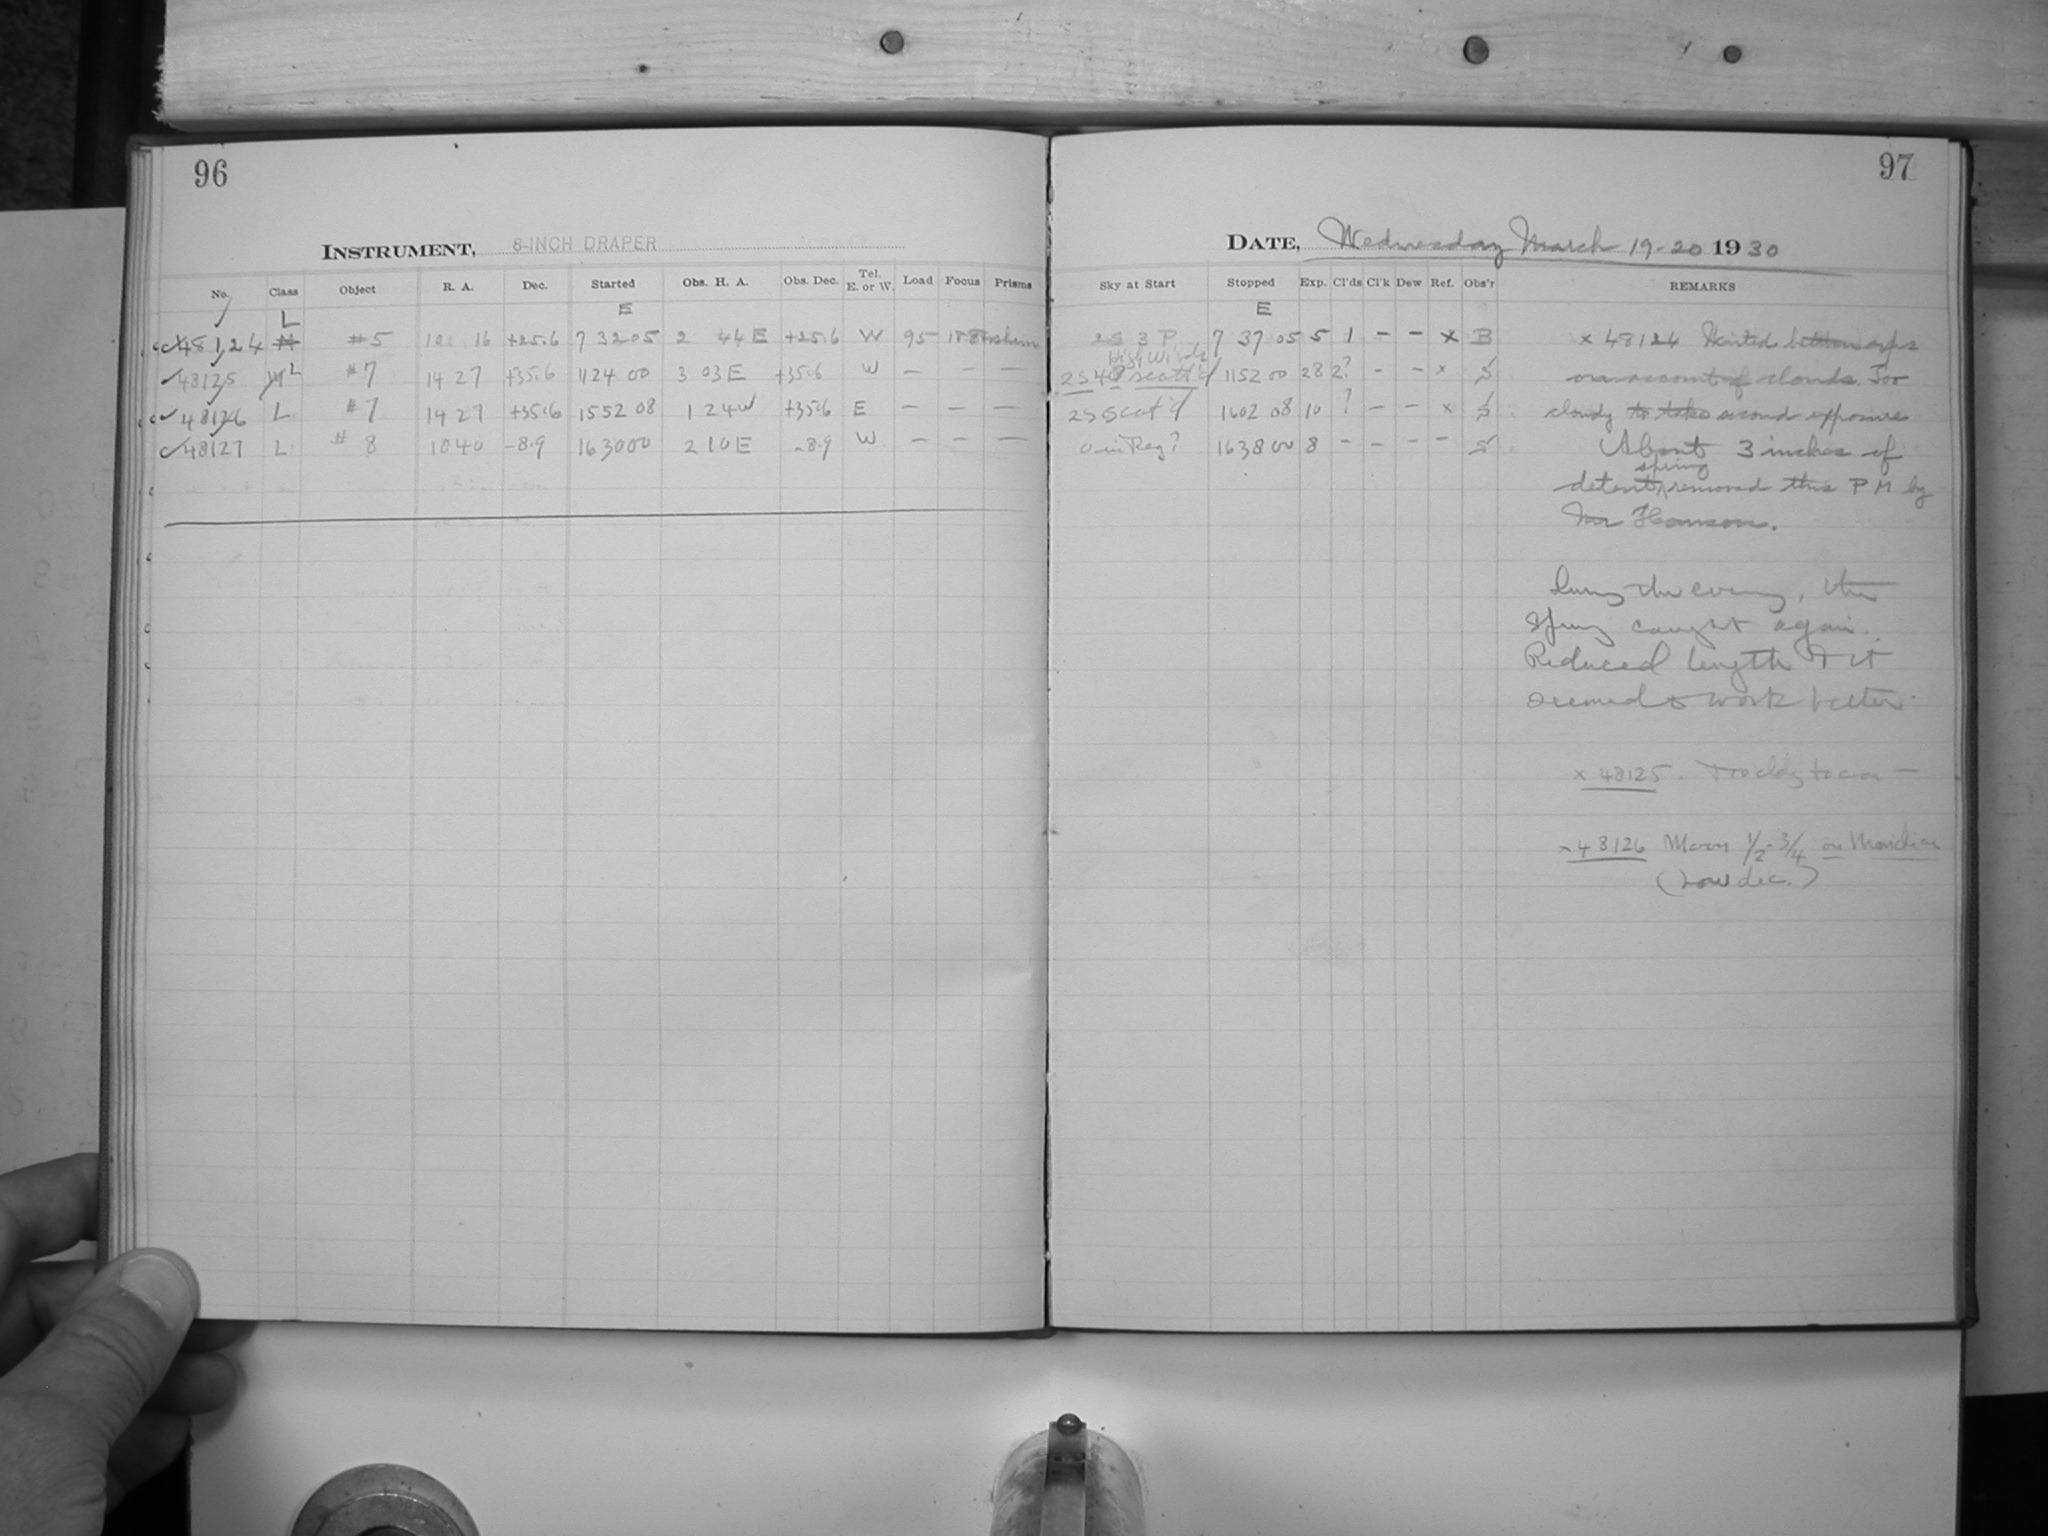 96
INSTRUMENT, 8-INCH DRAPER
No. Class Object R. A. Dec. Started Obs. H. A. Obs. Dec. Tel. E. or W. Load Focus Prisms
L E
48124 M #5 10 16 +25.6 7 32 05 2 44 E +25.6 W 95
48125 M L #7 14 27 +35.6 11 24 00 3 03 E +35.6 W — — —
48126 L #7 14 27 +35.6 15 52 08 1 24 W +35.6 E — — —
48127 L #8 18 40 -8.9 16 30 00 2 10 E -8.9 W — — —
97
DATE, Wednesday March 19-20 1930
Sky at Start Stopped Exp. Cl'ds Cl'k Dew Ref. Obs'r REMARKS
E
2S 3 P 7 37 05 5 1 — — x B x 48124 on
High Winds
2S scatt'd 11 52 00 28 2? - — x S on account of clouds. Too
2S Scat'd 16 02 08 10 ? — — x S cloudy to take second exposure
0 in Reg? 16 38 00 8 - - - - S About 3 inches of
spring
detent removed this P M by
Mr
During the evening, the
Spring caught again.
Reduced length & it
seemed to work better.
x 48125. Too cldy to
x 48126 Moon 1/2 - 3/4 on Meridian
(Low dec.)